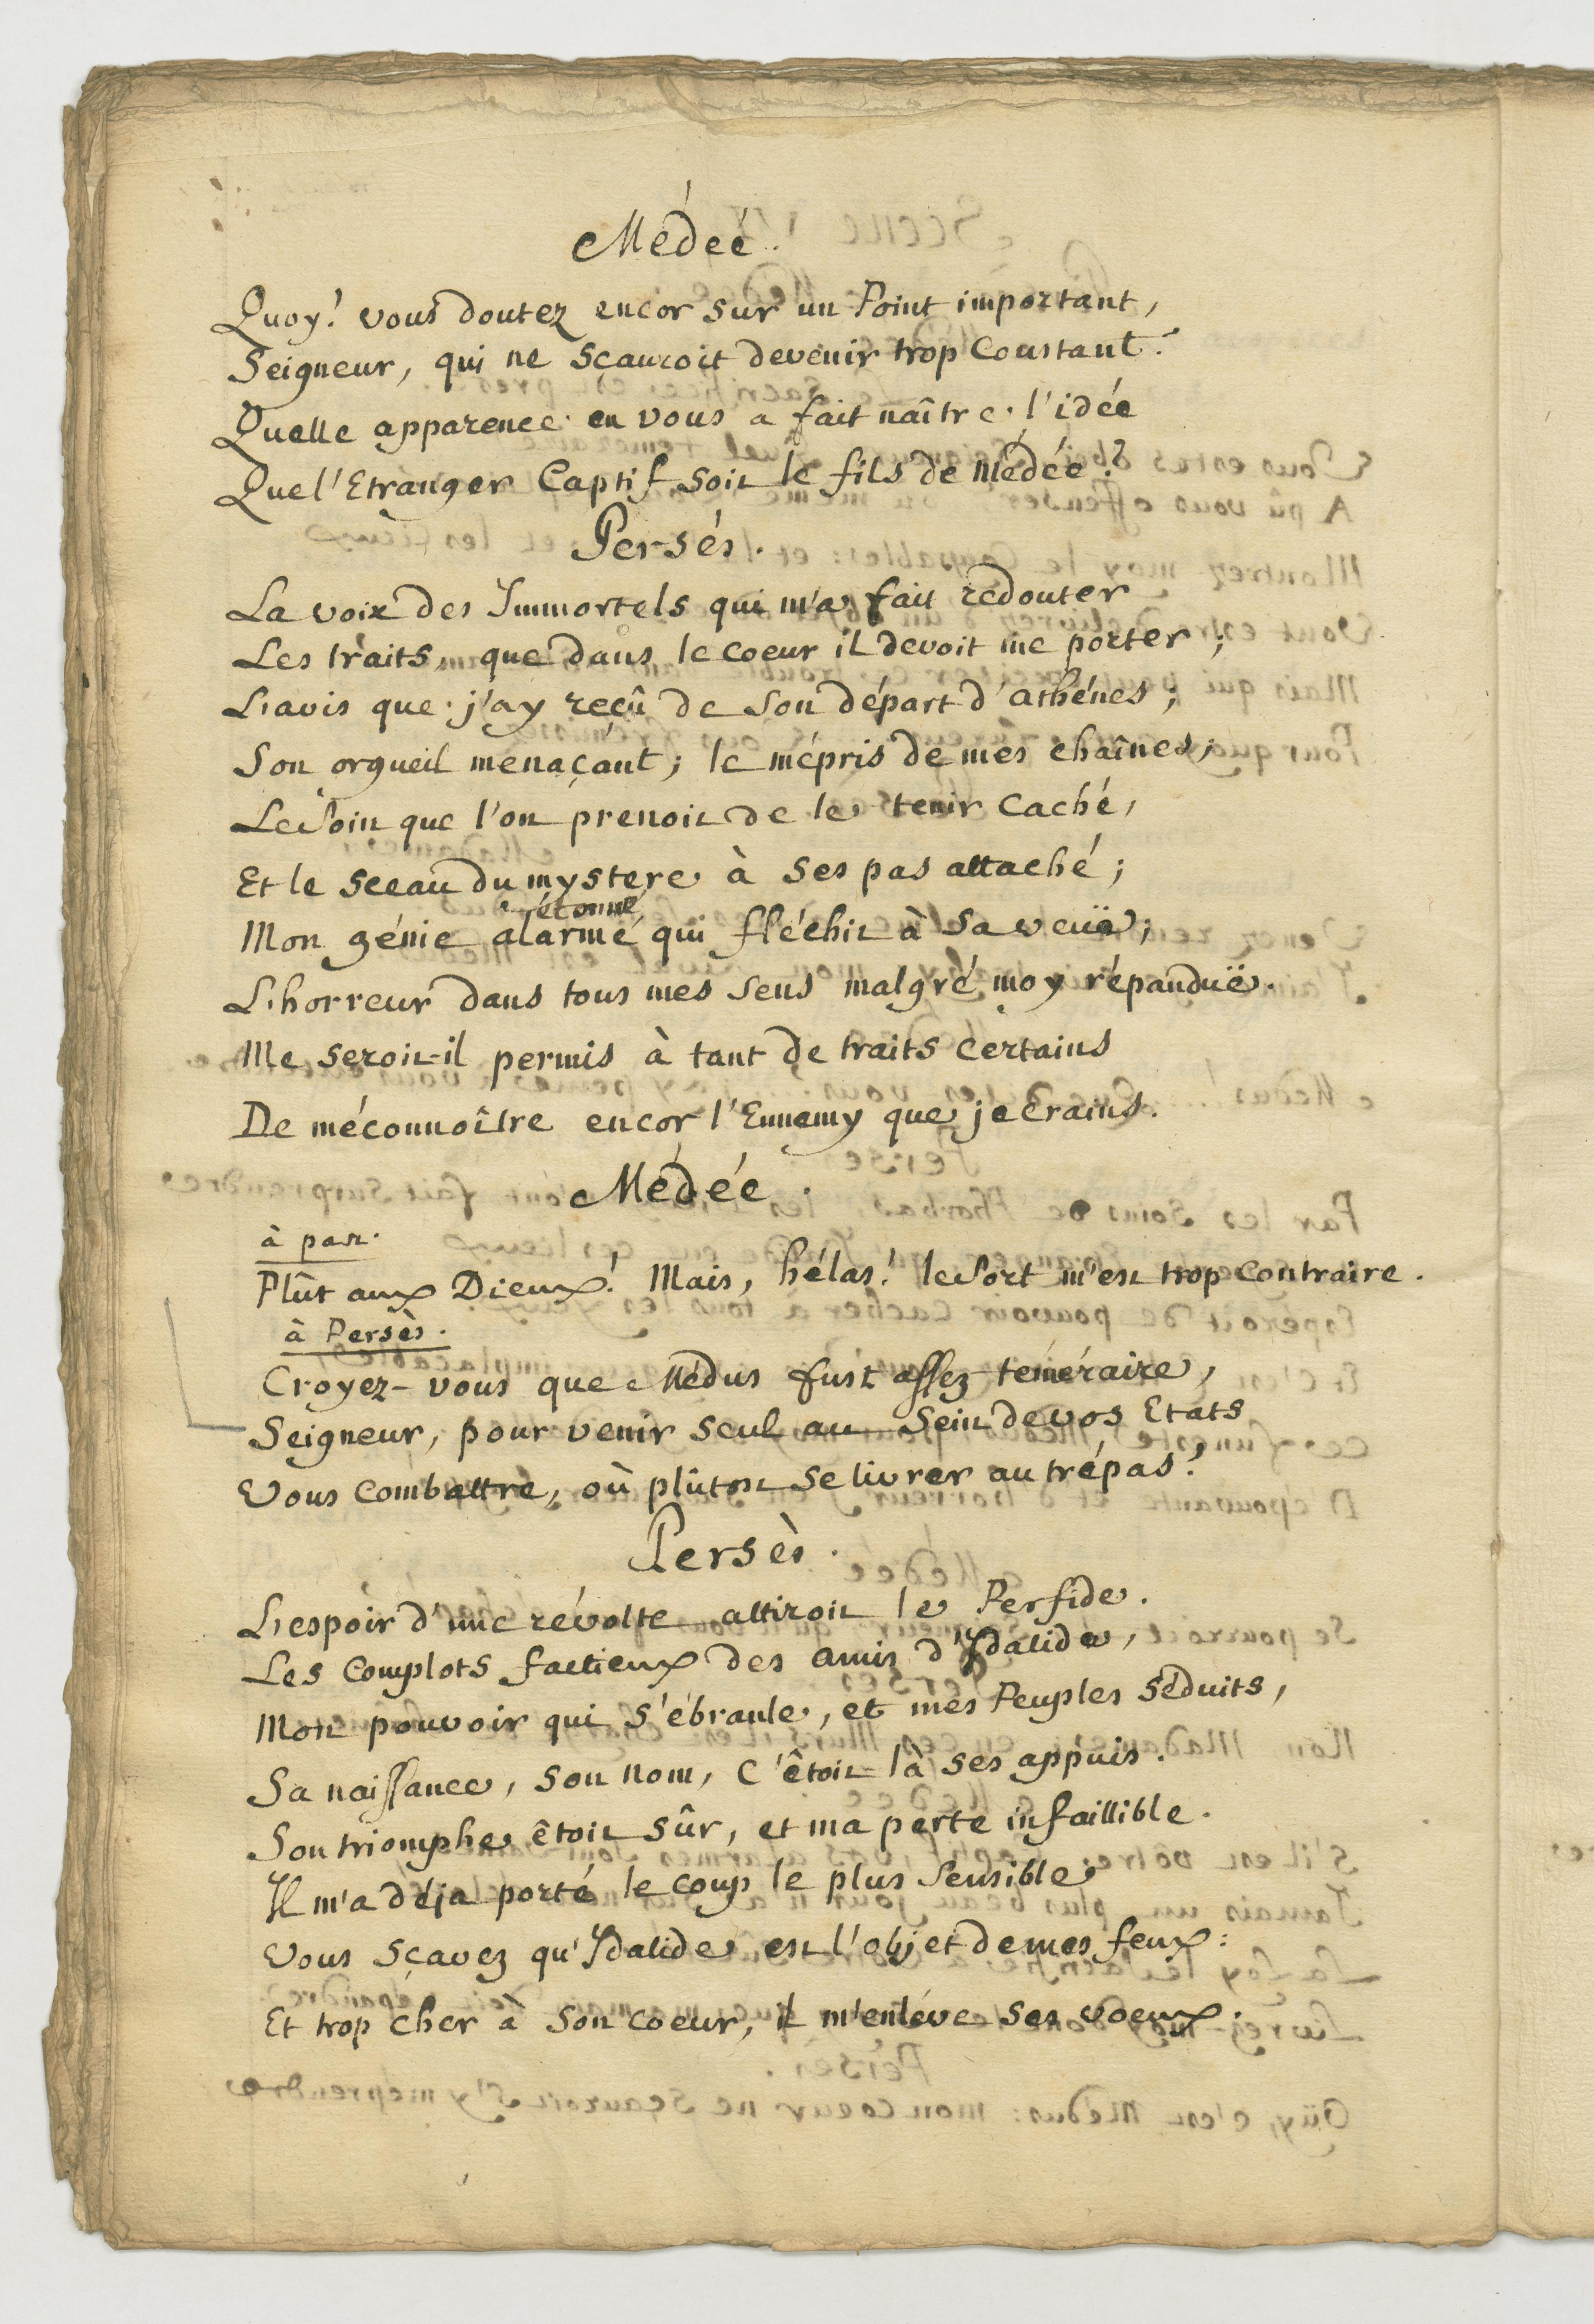 Médeé.
Quoy! vous doutez encor sur un Point important,
Seigneur, qui ne sçauroit devenir trop Constant.
Quelle apparence en vous a fait naître l'idée
Que l'Etranger Captif soit le fils de Médée?
Persés.
La voix des Immortels qui m'a fait redouter
Les traits, que dans le coeur il devoit me porter;
L'avis que j'ay reçû de son départ d'athénes;
Son orgueil menaçant; le mépris de mes chaînes;
Le soin que l'on prenoit de le tenir caché,
Et le sceau du mystere à ses pas attaché;
étonné
Mon génie alarmé qui fléchit à sa veuë;
L'horreur dans tous mes sens malgré moy répanduë.
Me seroit-il permis à tant de traits certains
De méconnoître encor l'Ennemy que je crains.
Médée.
à part.
Plût aux Dieux! Mais, hélas! le sort m'est trop contraire.
à Persès.
Croyez-vous que Médus fust assez teméraire,
Seigneur, pour venir seul au sein de vos Etats
Vous combattre, où plûtost se livrer au trépas?
Persès.
L'espoir d'une révolte attiroit le Perfide.
Les Complots factieux des amis d'Ydalide,
Mon pouvoir qui s'ébranle, et mes Peuples séduits,
Sa naissance, son nom, c'êtoit là ses appuis.
Son triomphe êtoit sûr, et ma perte infaillible.
Il m'a déja porté le coup le plus sensible
Vous sçavez qu'Ydalide est l'objet de mes feux:
Et trop cher à son coeur, il m'enléve ses voeux.